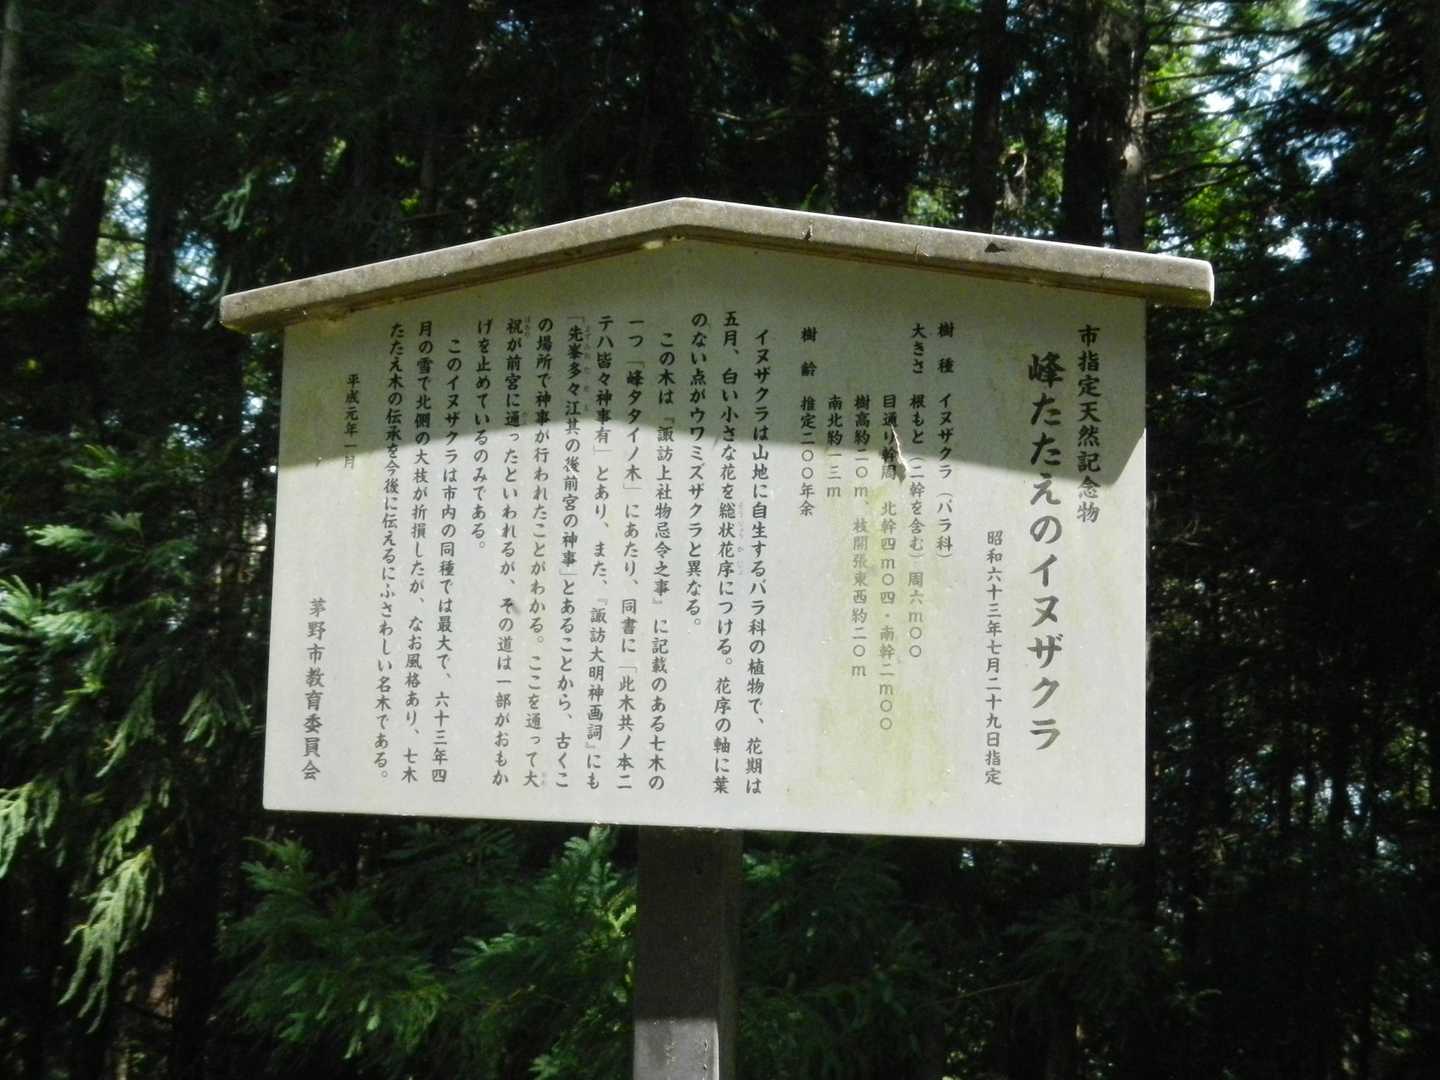 市指定天然記念物
峰たたえのイヌザクラ
昭和六十三年七月二十九日指定
樹種 イヌザクラ（バラ科）
大きさ 根もと（二幹を含む）周六ｍ〇〇
目通り幹周 北幹四ｍ〇四・南幹二ｍ〇〇
樹高約二〇ｍ、枝開張東西約二〇ｍ
南北約一三ｍ
樹齢 推定二〇〇年余
イヌザクラは山地に自生するバラ科の植物で、花期は
五月、白い小さな花を総状花序につける。花序の軸に葉
のない点がウワミズザクラと異なる。
この木は『諏訪上社物忌令之事』に記載のある七木の
一つ「峰タタイノ木」にあたり、同書に「此木共ノ本二
テハ皆々神事有」とあり、また、『諏訪大明神画詞』にも
「先峯多々江其の後前宮の神事」とあることから、古くこ
の場所で神事が行われたことがわかる。ここを通って大
祝が前宮に通ったといわれるが、その道は一部がおもか
げを止めているのみである。
このイヌザクラは市内の同種では最大で、六十三年四
月の雪で北側の大枝が折損したが、なお風格あり、七木
たたえ木の伝承を今後に伝えるにふさわしい名木である。
平成元年一月
茅野市教育委員会